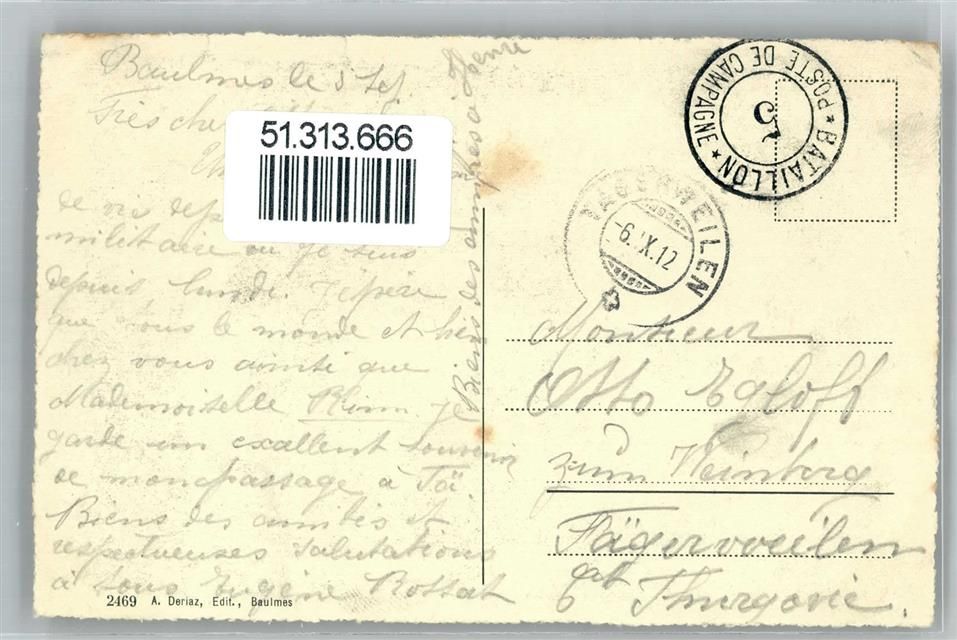 Baulmes le 5
Très
51.313.666
de vie
militaire ou je suis
depuis lundi. J'espère
que tous le monde et
chez vous ainsi que
Mademoiselle Rinn. Je
garde un exallent souvenir
de mon passage à Täi.
Biens des amitiés et
respectueuses salutations
à tous Eugène Rossat
Biens des à Henri
2469 A. Deriaz, Edit., Baulmes
★ POSTE DE CAMPAGNE ★ BATAILLON
5
TÄGERWEILEN
-6.IX.12
Monsieur
Otto Egloff
zum Weinberg
Tägerweilen
ct Thurgovie.